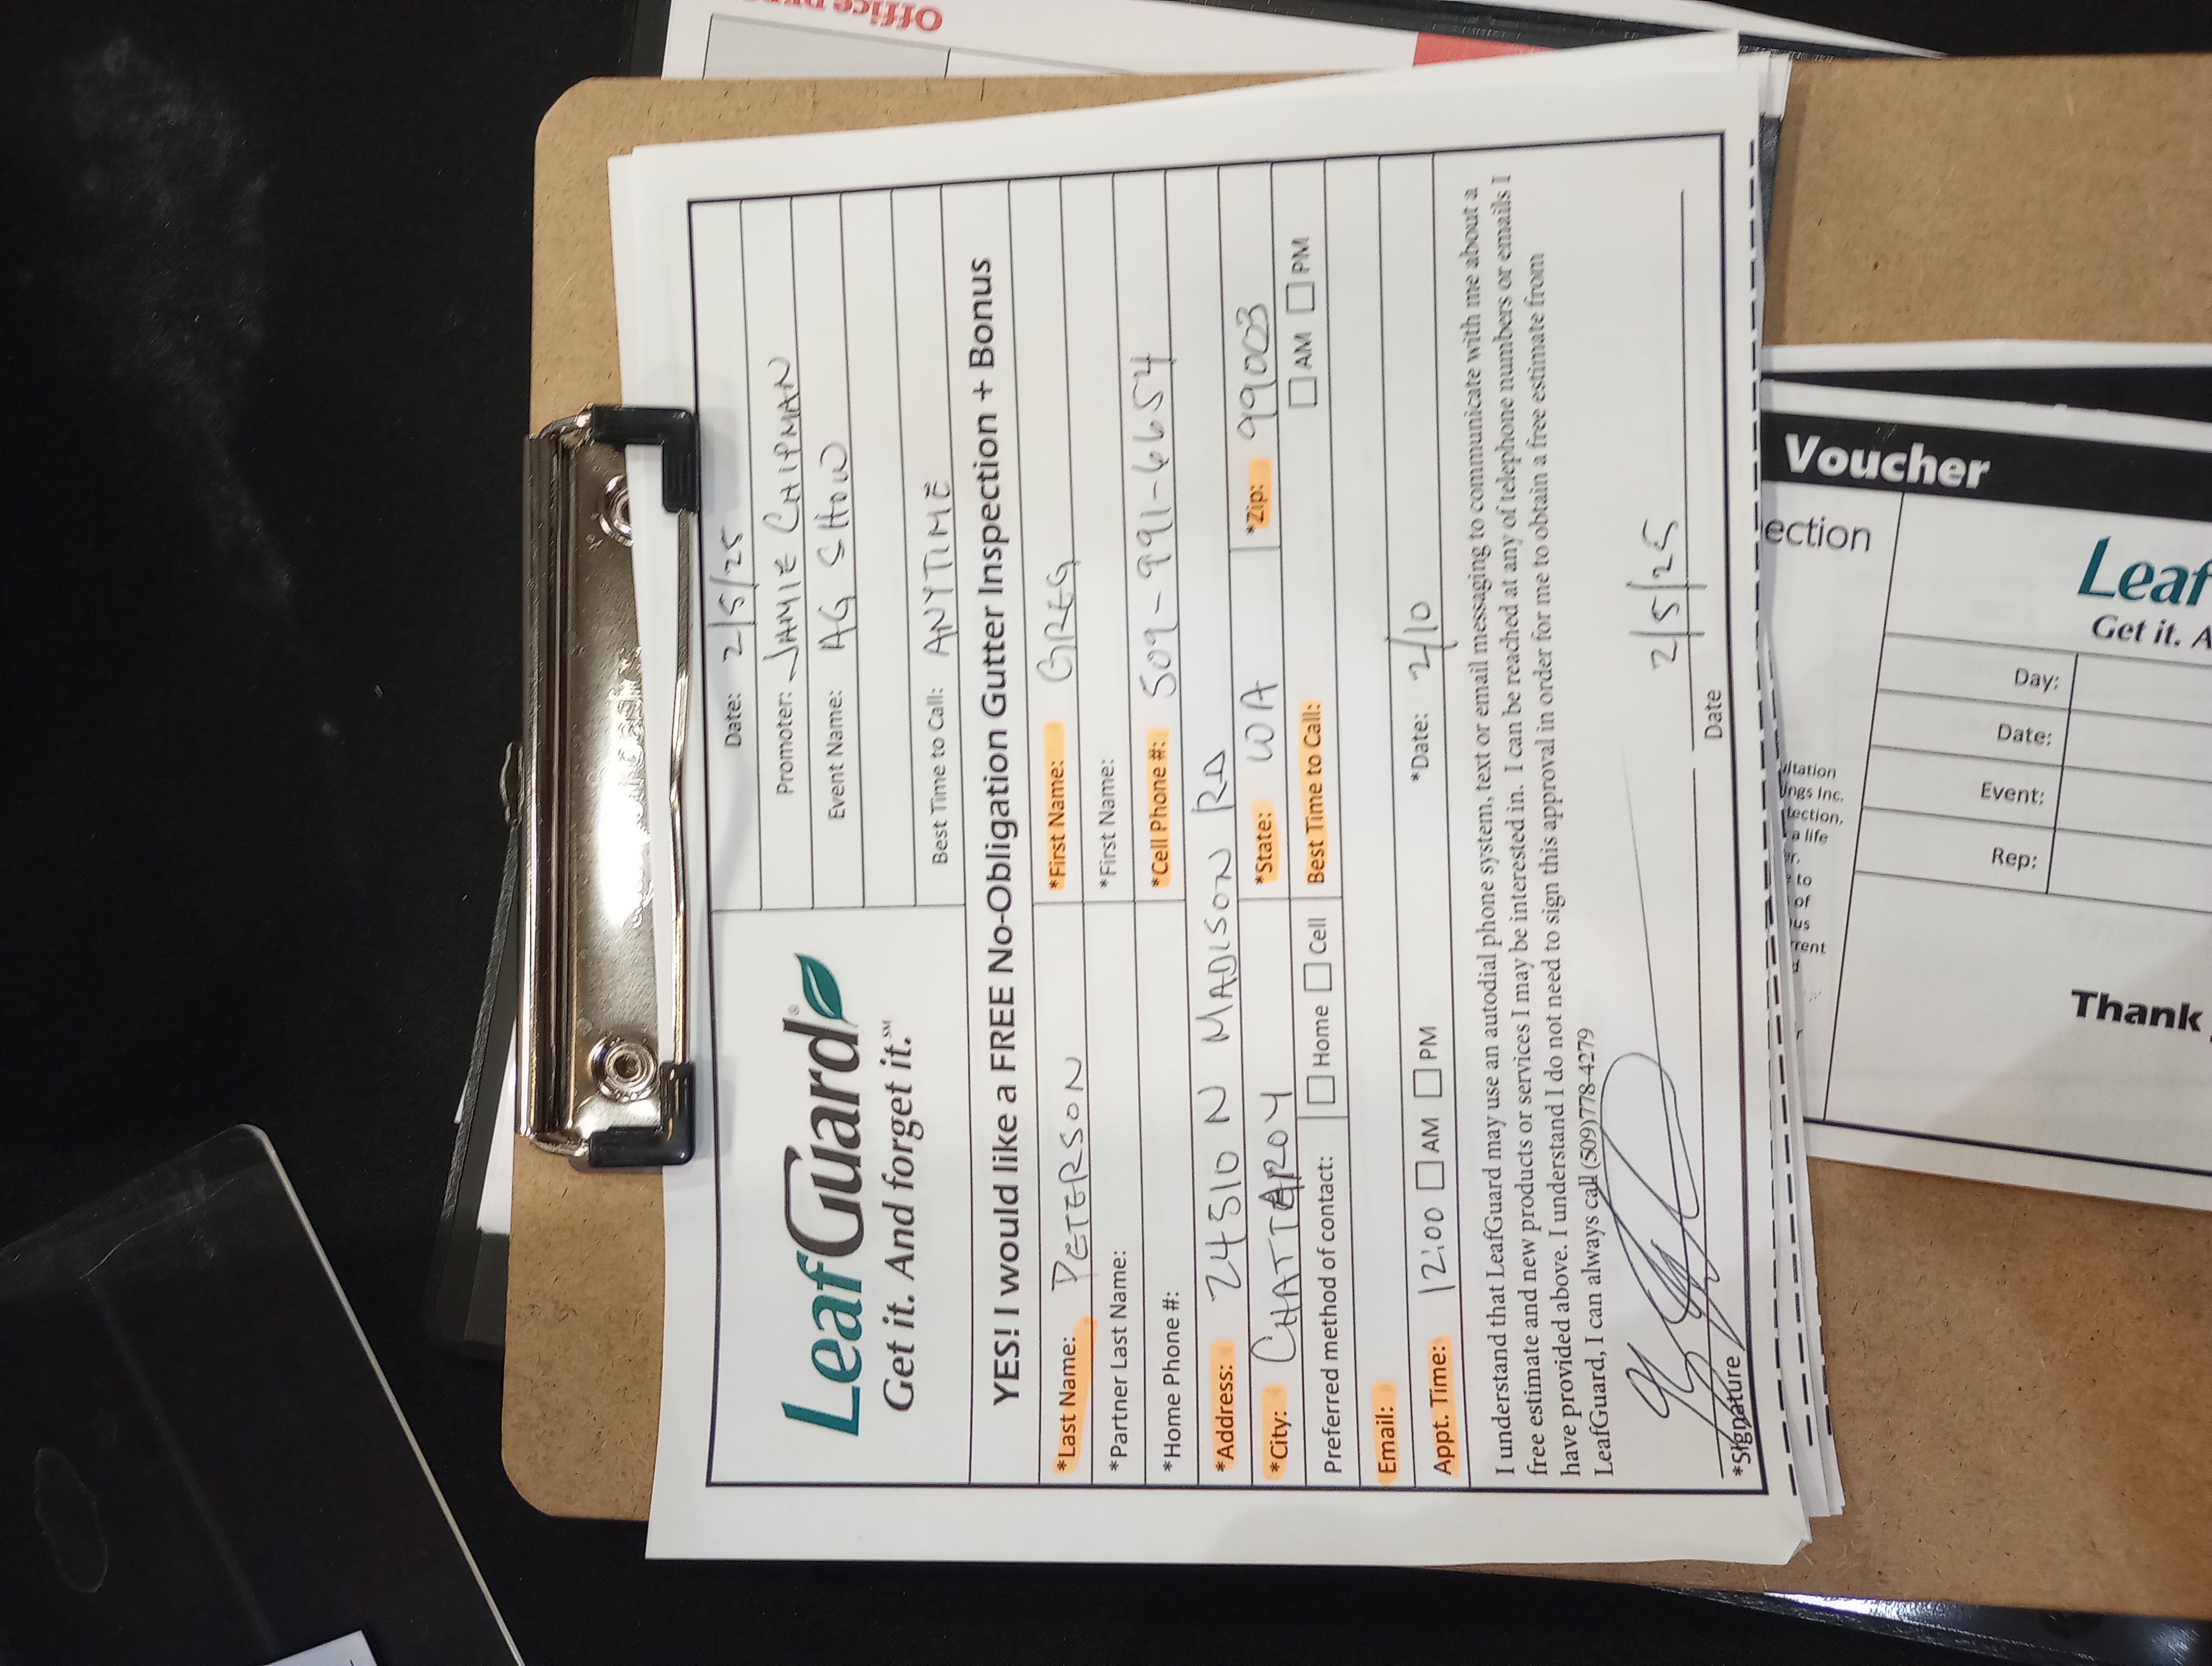 LeafGuard®
Get it. And forget it.℠
Date: 2/5/25
Promoter: JAMIE CHIPMAN
Event Name: AG SHOW
Best Time to Call: ANYTIME
YES! I would like a FREE No-Obligation Gutter Inspection + Bonus
*Last Name: PETERSON *First Name: GREG
*Partner Last Name: *First Name:
*Home Phone #: *Cell Phone #: 509-991-6654
*Address: 24510 N MADISON RD
*City: CHATTAROY *State: WA *Zip: 99003
Preferred method of contact: Home Cell Best Time to Call: AM PM
Email:
Appt. Time: 12:00 AM PM *Date: 2/10
I understand that LeafGuard may use an autodial phone system, text or email messaging to communicate with me about a
free estimate and new products or services I may be interested in. I can be reached at any of telephone numbers or emails I
have provided above. I understand I do not need to sign this approval in order for me to obtain a free estimate from
LeafGuard, I can always call (509)778-4279
2/5/25
*Signature Date
Voucher
ection
Leaf
Get it. A
Day:
Date:
Event:
Rep:
Thank
Office